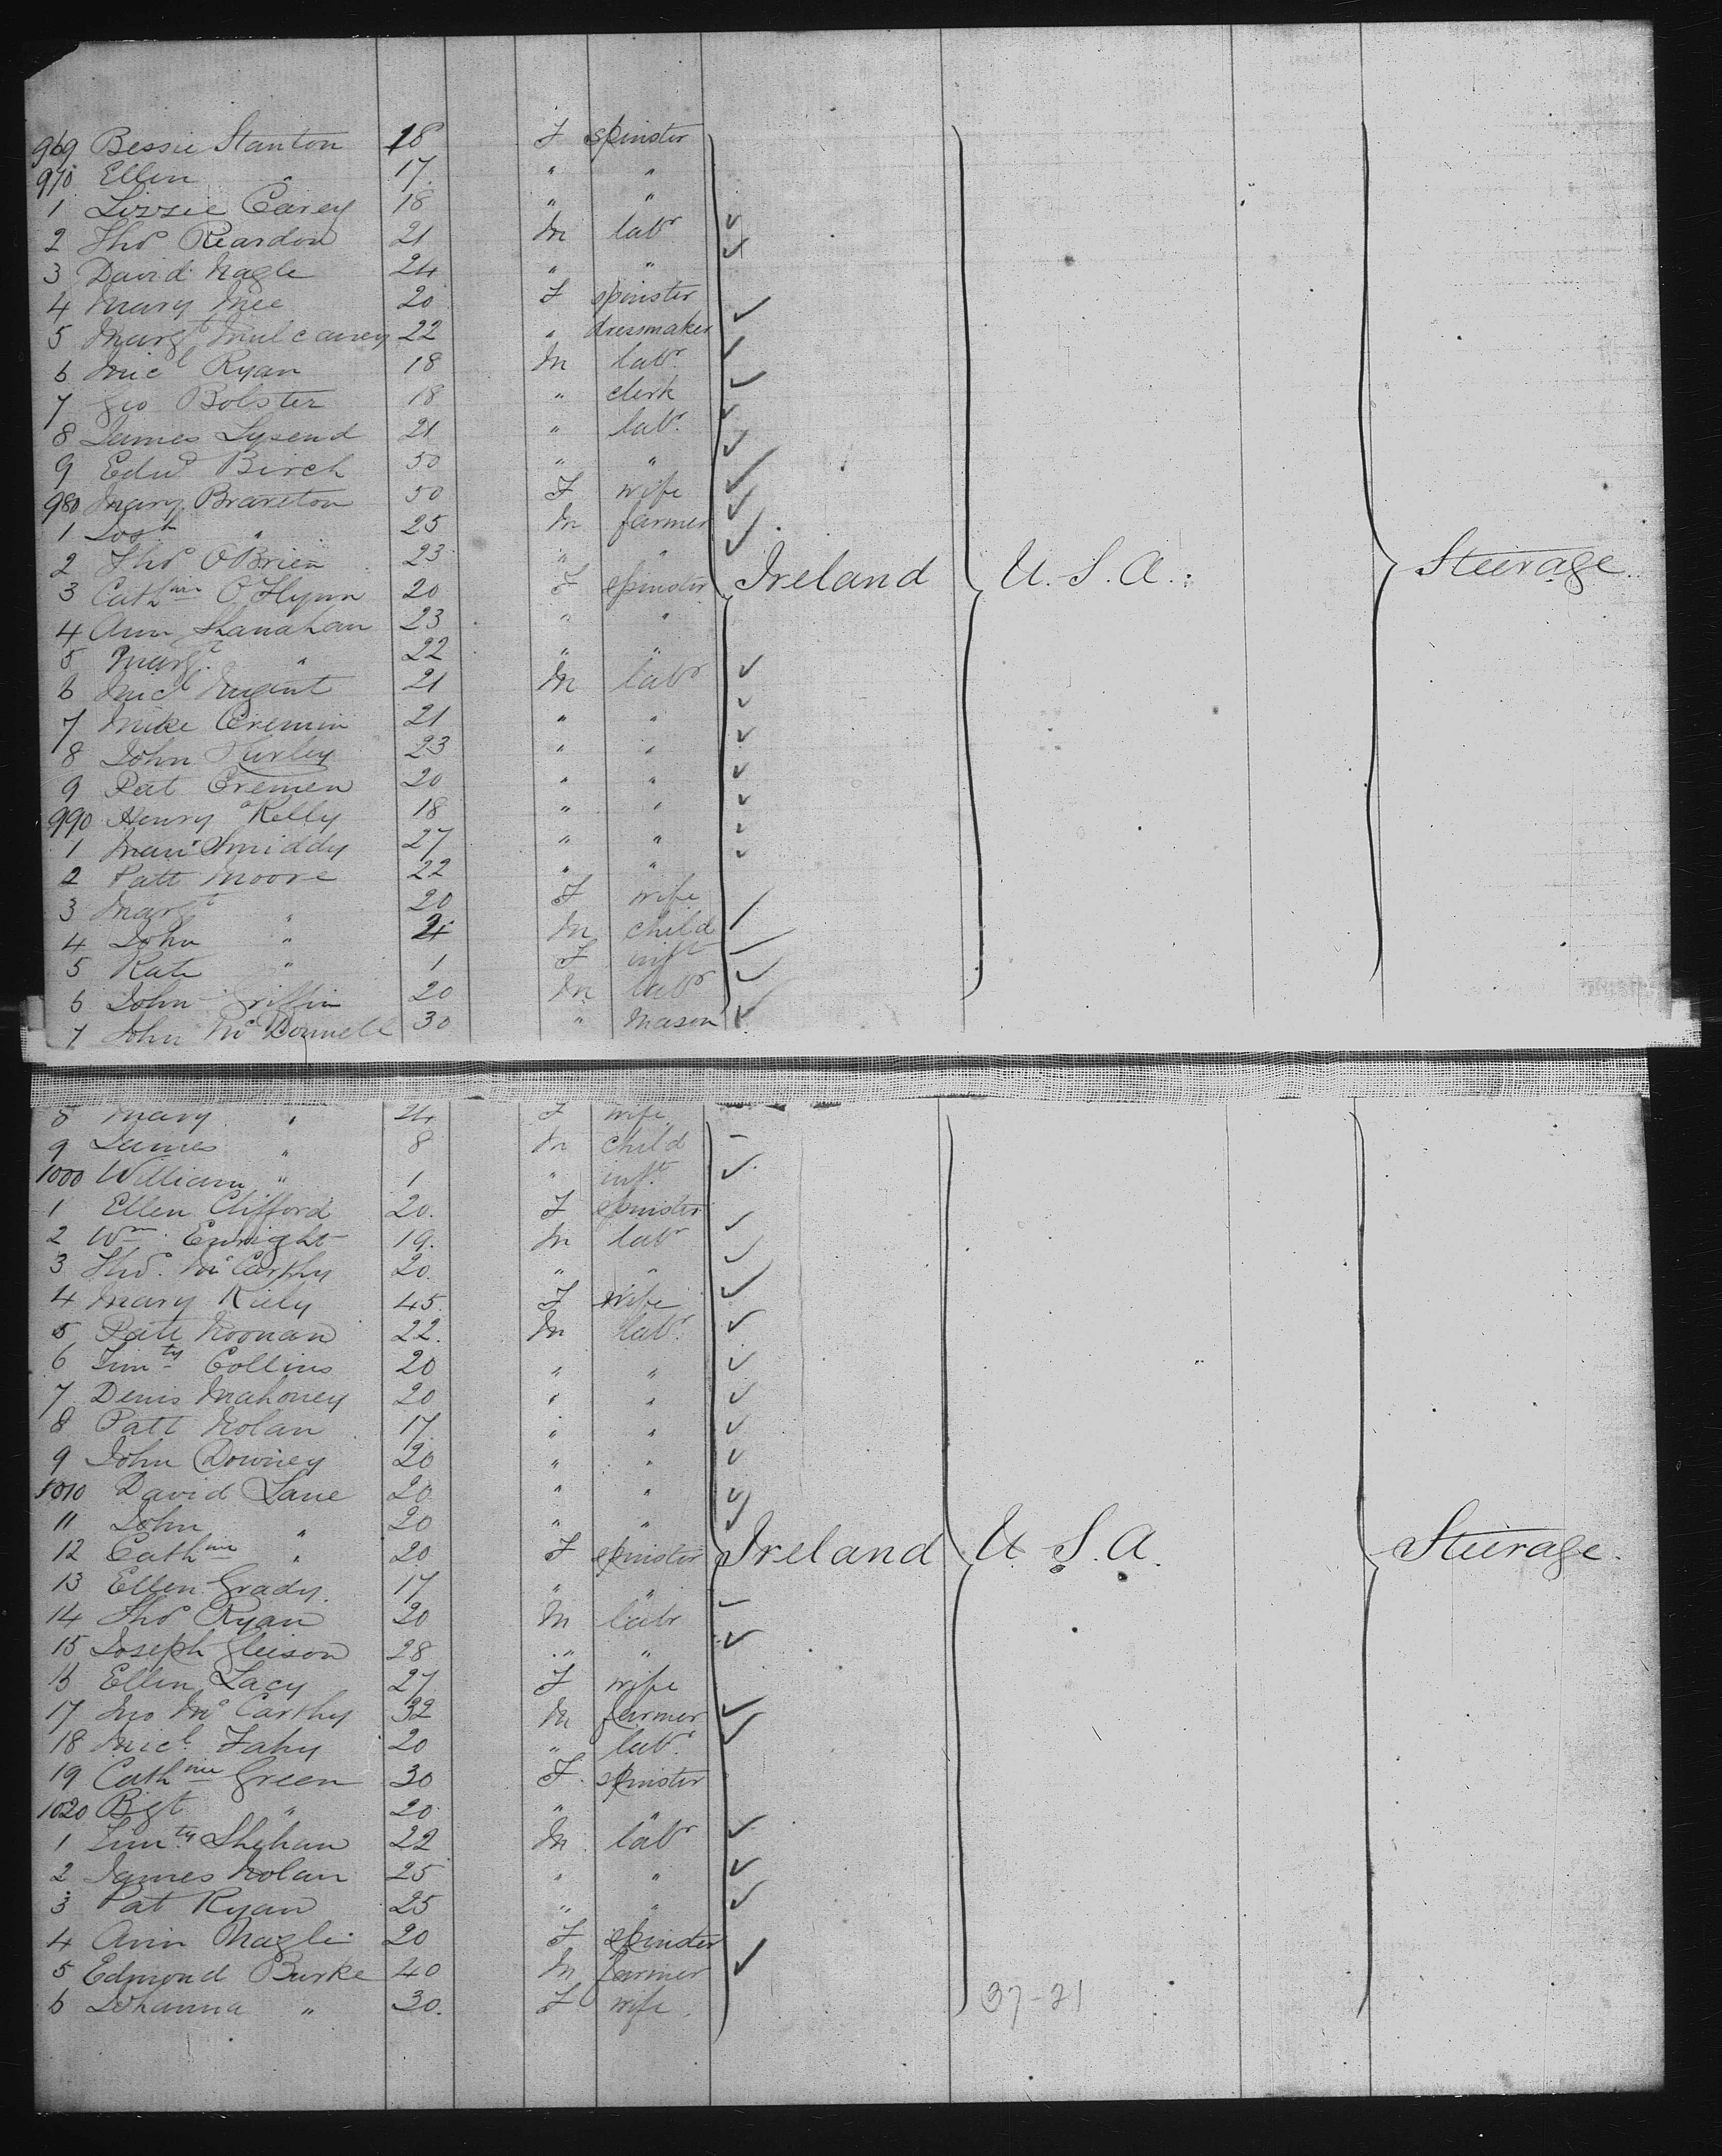 969 Bessie Stanton 18 F spinster
970 Ellen " 17 " "
1 Lizzie Carey 18 " "
2 Thos Reardon 21 M labr
3 David Nagle 24 " "
4 Mary Mee 20 F spinster
5 Margt Mulcaney 22 " dressmaker
6 Micl Ryan 18 M labr
7 Geo Bolster 18 " clerk
8 James Lysend 21 " labr
9 Edwd Birch 50 " "
980 Mary Brareton 50 F wife
1 " 25 M farmer
2 Thos O'Brien 23 " "
3 Cathne O'Flynn 20 F spinster Ireland U.S.A. Steerage
4 Ann Shanahan 23 " "
5 Margt " 22 " "
6 Micl Nugent 21 M labr
7 Mike Cremin 21 " "
8 John Hurley 23 " "
9 Pat Cremen 20 " "
990 Henry Kelly 18 " "
1 Smiddy 27 " "
2 Patt Moore 22 " "
3 Margt " 20 F wife
4 John " M child
5 Kate " 1 F inft
6 John Griffin 20 M labr
7 John McDonnell 30 " mason
8 Mary " 24 F wife
9 James " 8 M child
1000 William " 1 " inft
1 Ellen Clifford 20 F spinster
2 Wm Enright 19 M labr
3 Thos McCarthy 20 " "
4 Mary Kiely 45 F wife
5 Patt Noonan 22 M labr
6 Timty Collins 20 " "
7 Denis Mahoney 20 " "
8 Patt Nolan 17 " "
9 John Downey 20 " "
1010 David Lane 20 " "
11 John " 20 " "
12 Cathne " 20 F spinster Ireland U.S.A. Steerage
13 Ellen Grady 17 " "
14 Thos Ryan 20 M labr
15 Joseph Gleison 28 " "
16 Ellen Lacy 27 F wife
17 Jno McCarthy 32 M farmer
18 Micl Fahy 20 " labr
19 Cathne Green 30 F spinster
1020 Bgt " 20 " "
1 Timty Shehan 22 M labr
2 James Nolan 25 " "
3 Pat Ryan 25 " "
4 Ann Nagle 20 F spinster
5 Edmond Burke 40 M farmer
6 Johanna " 30 F wife
37-21